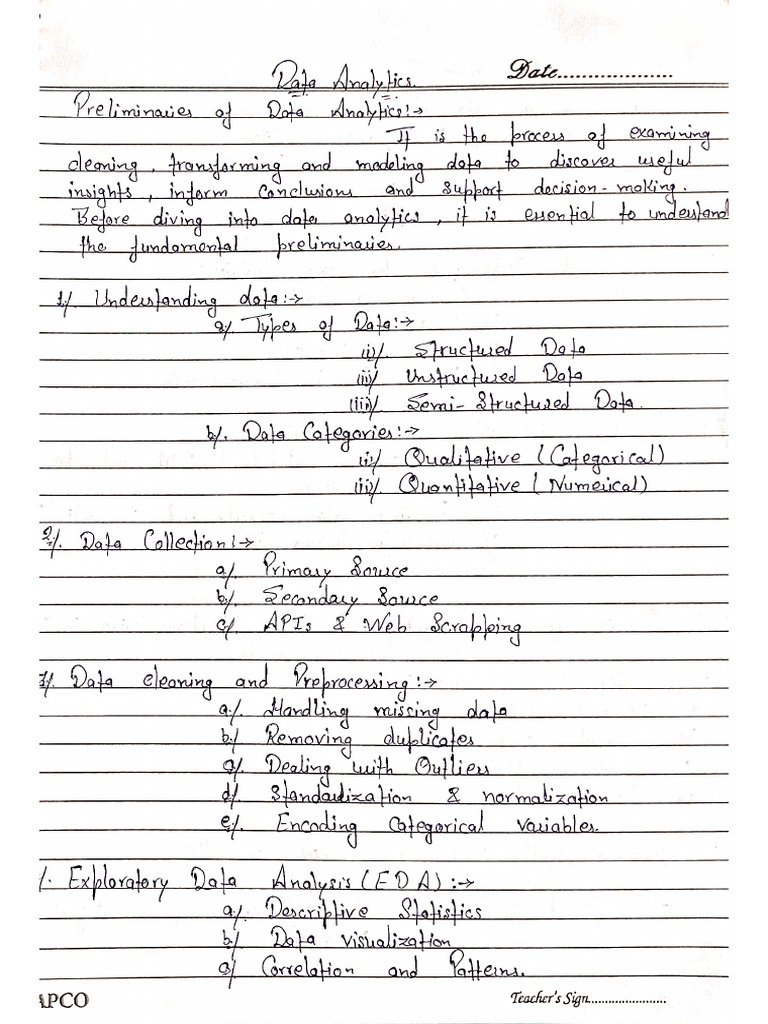 Data Analytics.
Date....................
Preliminaries of Data Analytics:→
It is the process of examining
cleaning, transforming and modeling data to discover useful
insights, inform conclusions and support decision-making.
Before diving into data analytics, it is essential to understand
the fundamental preliminaries.
1/. Understanding data:→
a/. Types of Data:→
(i)/. Structured Data
(ii)/. Unstructured Data
(iii)/. Semi-Structured Data.
b/. Data Categories:→
(i)/. Qualitative (Categorical)
(ii)/. Quantitative (Numerical)
2/. Data Collection:→
a/. Primary Source
b/. Secondary Source
c/. APIs & Web Scrapping
3/. Data cleaning and Preprocessing:→
a/. Handling missing data
b/. Removing duplicates
c/. Dealing with Outliers
d/. Standardization & normalization
e/. Encoding Categorical variables.
/. Exploratory Data Analysis (EDA):→
a/. Descriptive Statistics
b/. Data visualization
c/. Correlation and Patterns.
APCO
Teacher's Sign.......................